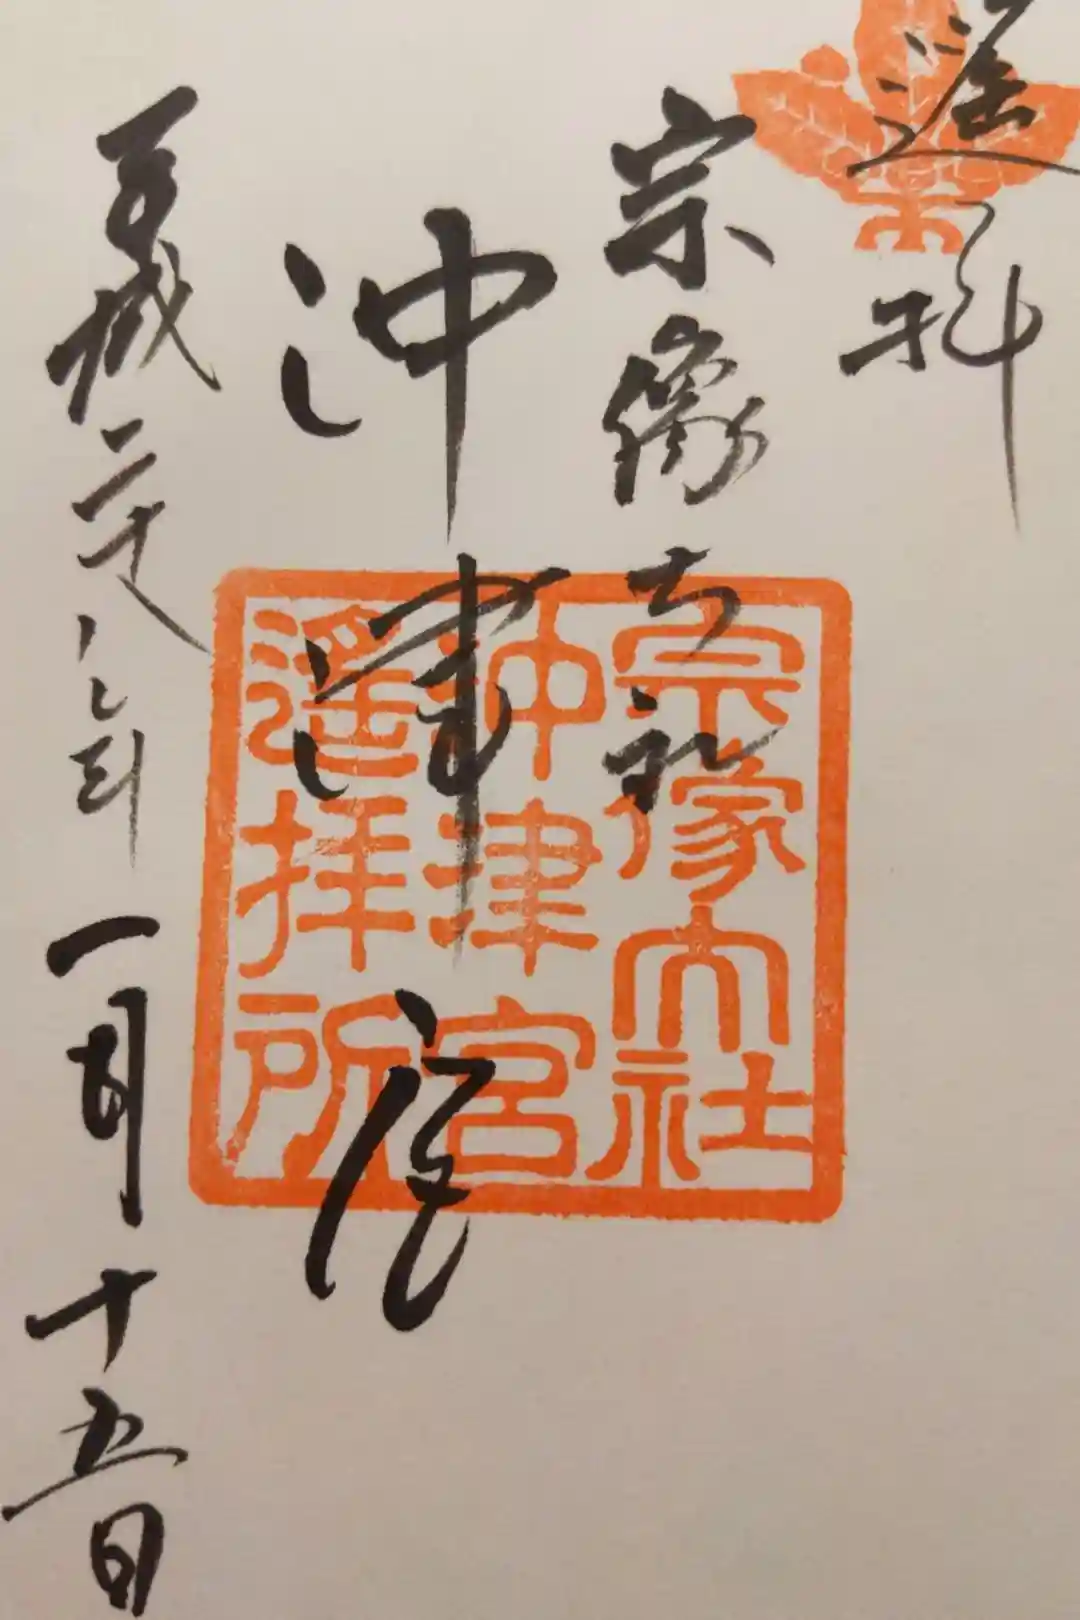 遥拝
宗像大社
沖津宮
平成二十八年一月十五日
宗像大社
沖津宮
遥拝所